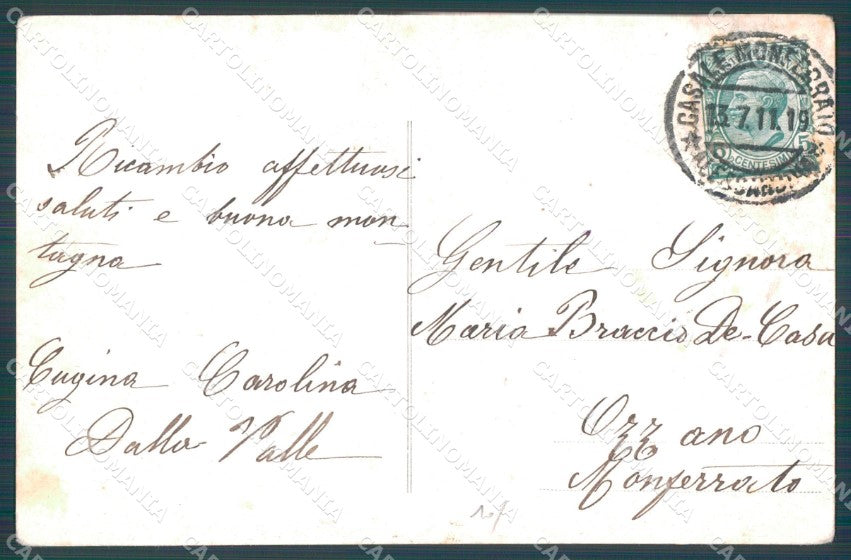 Ricambio affettuosi
saluti e buona mon
tagna
Cugina Carolina
Dalla Valle
CASALE MONFERRATO
13.7.11.19
CENTESIMI
5
Gentile Signora
Maria Braccio De-Casa
Ozzano
Monferrato
CARTOLINOMANIA